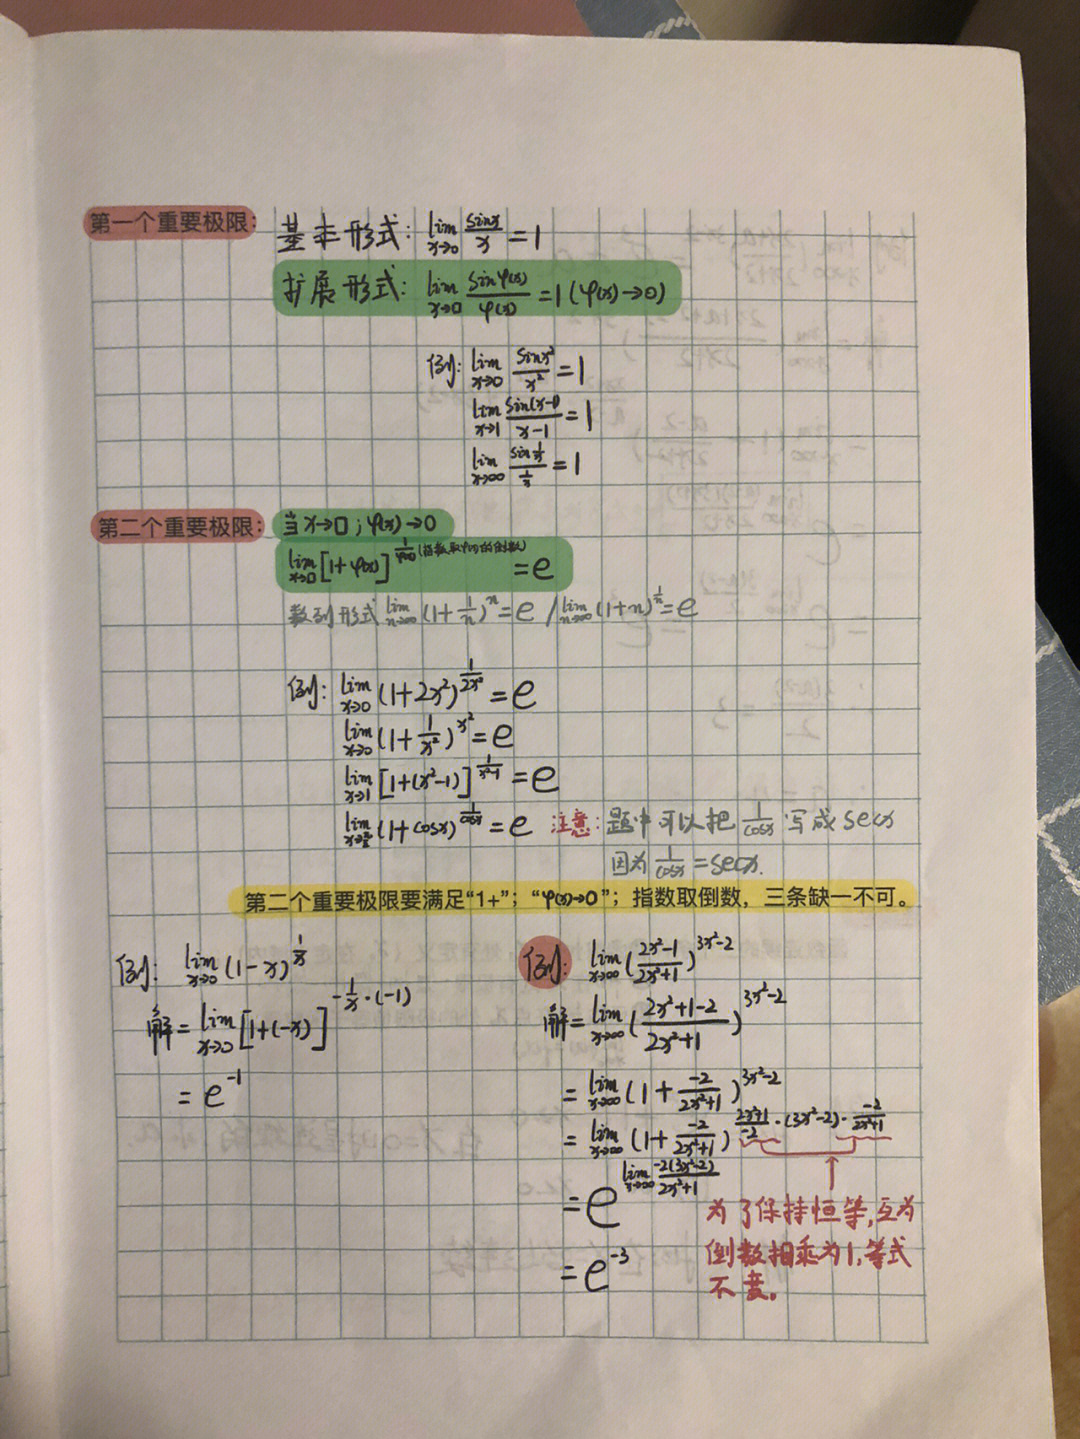 第一个重要极限: 基本形式: lim x→0 sinx/x = 1
扩展形式: lim x→0 sinφ(x)/φ(x) = 1 (φ(x)→0)
例: lim x→0 sinx²/x² = 1
lim x→1 sin(x-1)/x-1 = 1
lim x→∞ sin 1/x / 1/x = 1
第二个重要极限: 当x→0; φ(x)→0
lim x→0 [1+φ(x)]^1/φ(x) (指数取φ(x)的倒数) = e
数列形式 lim n→∞ (1+1/n)^n = e / lim n→∞ (1+n)^1/n = e
例: lim x→0 (1+2x²)^1/2x² = e
lim x→0 (1+1/x²)^x² = e
lim x→1 [1+(x²-1)]^1/x²-1 = e
lim x→π/2 (1+cosx)^1/cosx = e 注意: 题中可以把 1/cosx 写成 secx
因为 1/cosx = secx.
第二个重要极限要满足“1+”; “φ(x)→0”; 指数取倒数, 三条缺一不可。
例: lim x→0 (1-x)^1/x
解 = lim x→0 [1+(-x)]^-1/x·(-1)
= e^-1
例: lim x→∞ (2x²-1/2x²+1)^3x²-2
解 = lim x→∞ (2x²+1-2/2x²+1)^3x²-2
= lim x→∞ (1+ -2/2x²+1)^3x²-2
= lim x→∞ (1+ -2/2x²+1)^2x²+1/-2·(3x²-2)·-2/2x²+1
= e^lim x→∞ -2(3x²-2)/2x²+1
= e^-3
为了保持恒等, 互为
倒数相乘为1, 等式
不变。